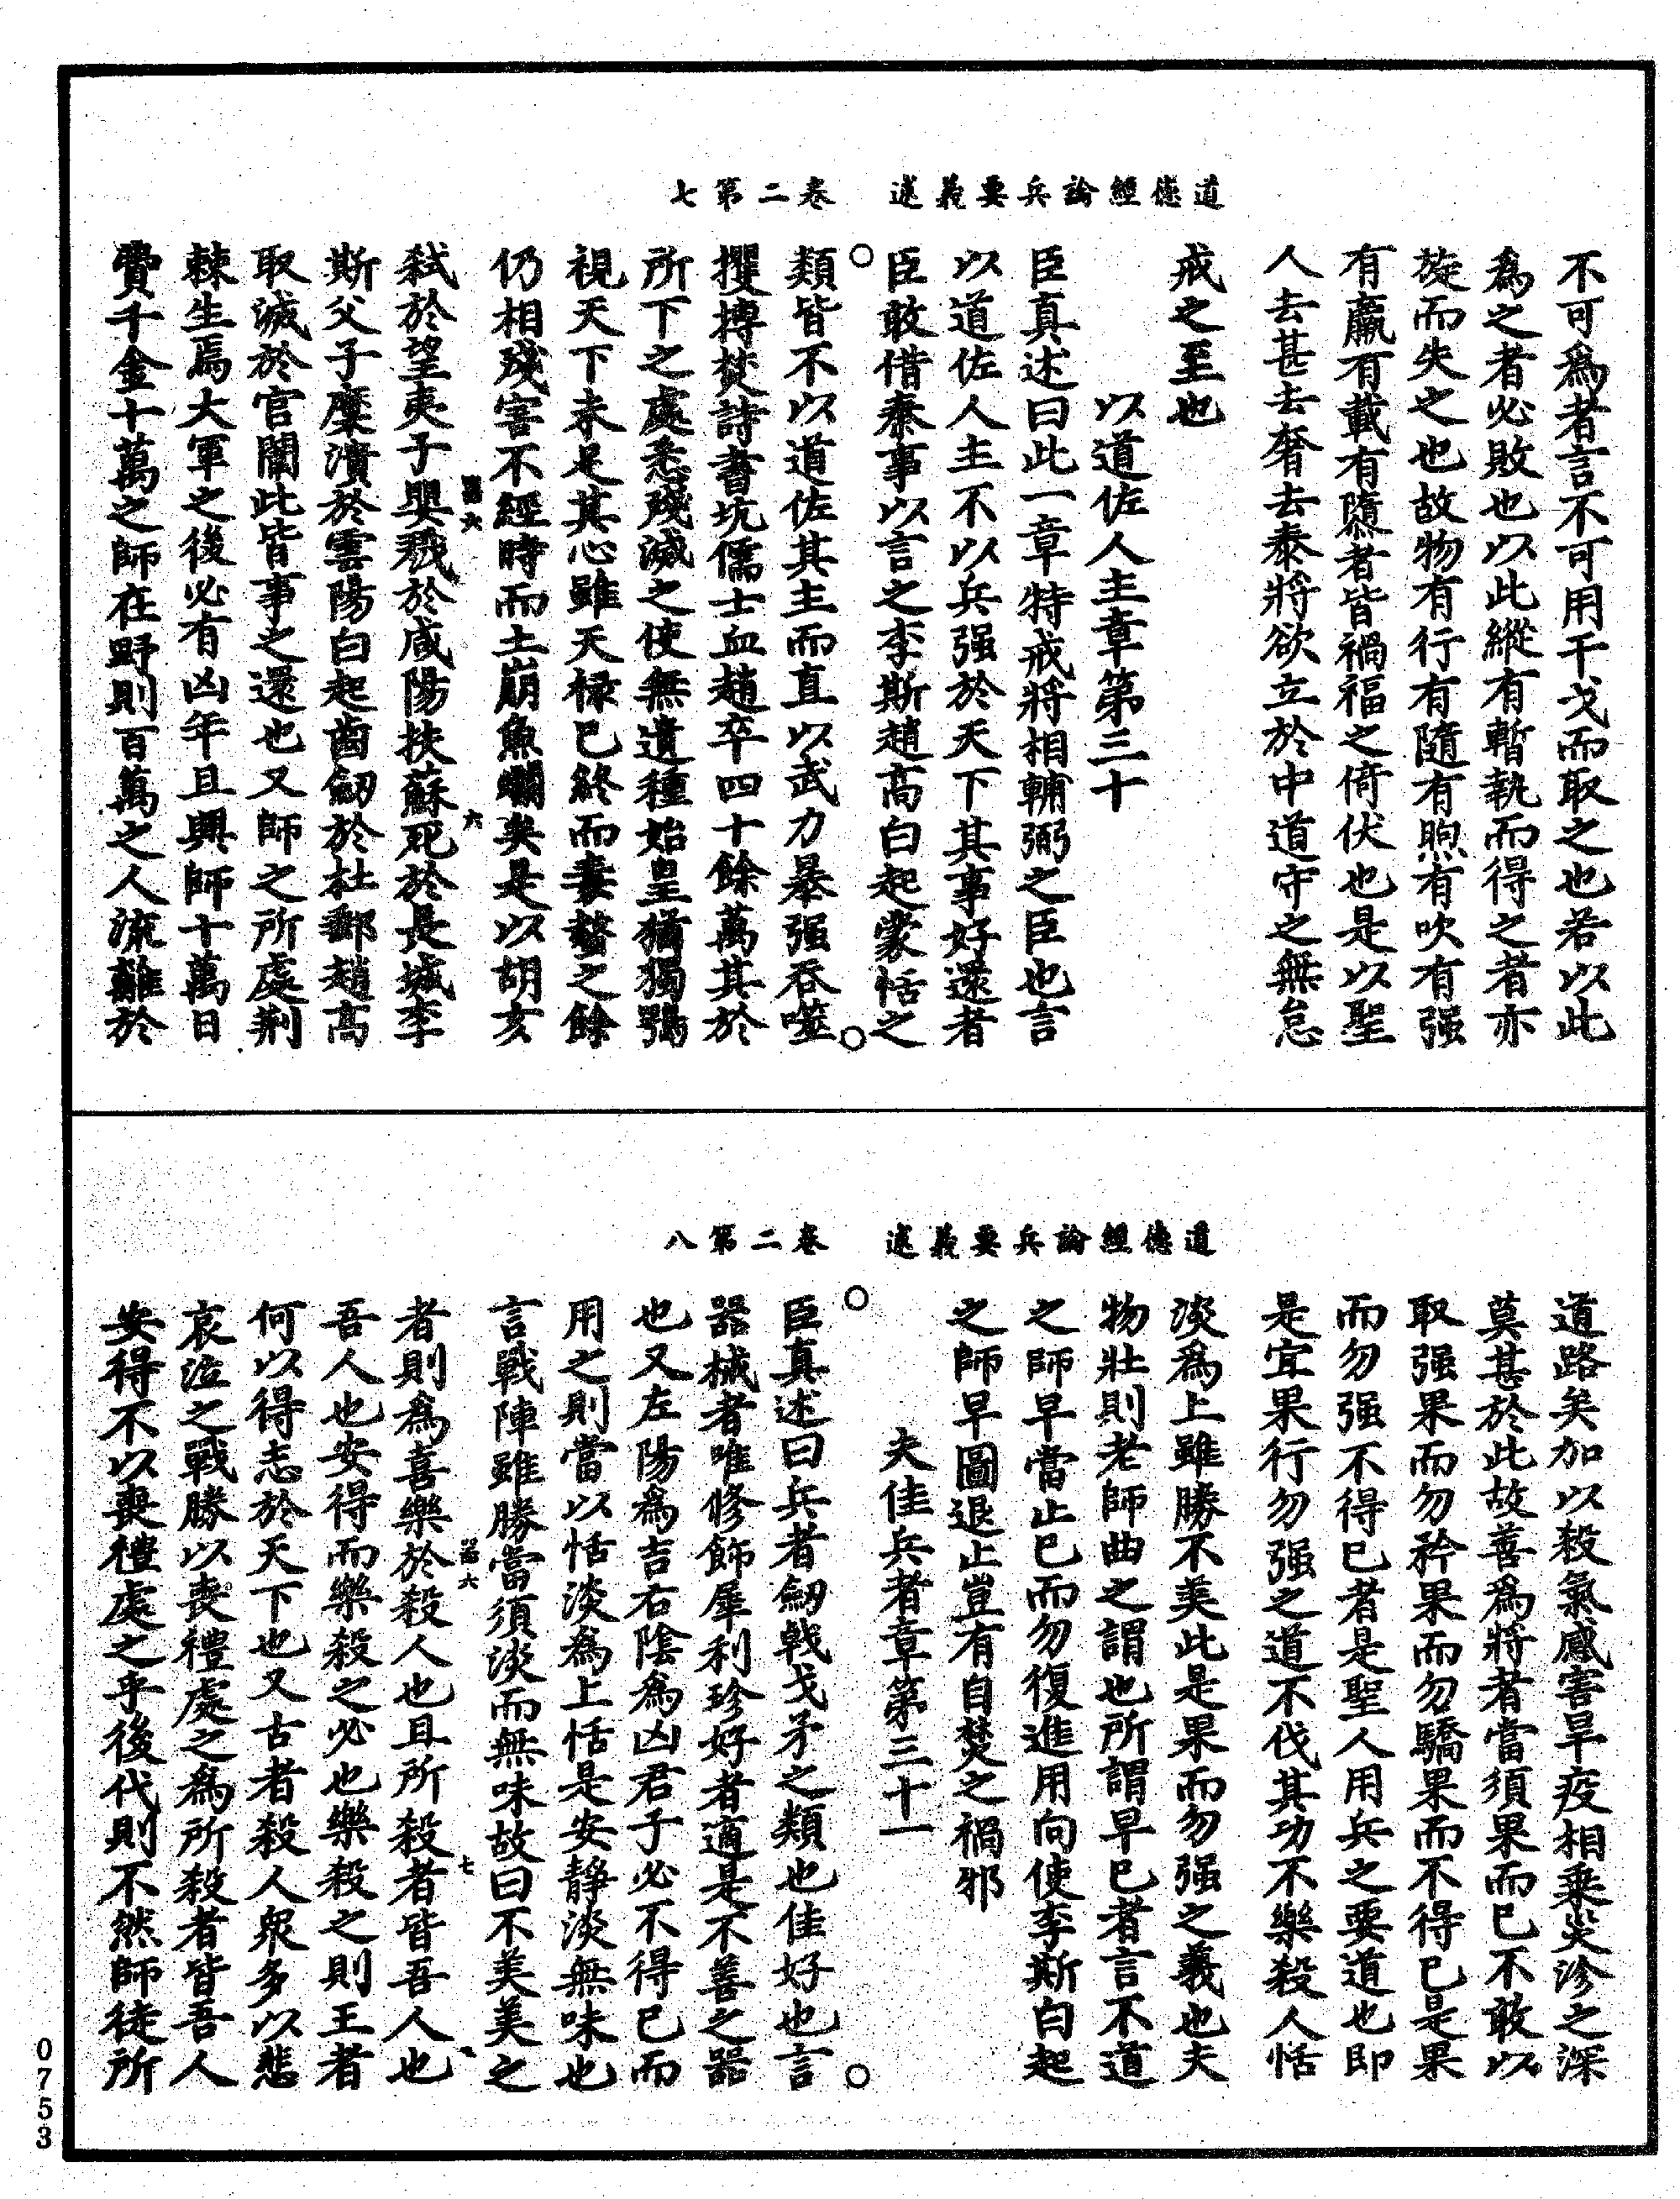 道德經論兵要義述　卷二第七
不可爲者言不可用干戈而取之也若以此
爲之者必敗也以此縱有暫執而得之者亦
旋而失之也故物有行有隨有煦有吹有强
有羸有載有隳者皆禍福之倚伏也是以聖
人去甚去奢去泰將欲立於中道守之無怠
戒之至也
以道佐人主章第三十
臣真述曰此一章特戒將相輔弼之臣也言
以道佐人主不以兵强於天下其事好還者
臣敢借秦事以言之李斯趙高白起蒙恬之
類皆不以道佐其主而直以武力暴强吞噬
攫搏焚詩書坑儒士血趙卒四十餘萬其於
所下之處悉殘滅之使無遺種始皇猶獨鶚
視天下未足其心雖天祿已終而妻孥之餘
仍相殘害不經時而土崩魚爛矣是以胡亥
弒於望夷子嬰戮於咸陽扶蘇死於長城李
斯父子糜潰於雲陽白起齒劒於杜郵趙高
取滅於宮闈此皆事之還也又師之所處荆
棘生焉大軍之後必有凶年且興師十萬日
費千金十萬之師在野則百萬之人流離於
器六
六
道德經論兵要義述　卷二第八
道路矣加以殺氣感害旱疫相乘災沴之深
莫甚於此故善爲將者當須果而已不敢以
取强果而勿矜果而勿驕果而不得已是果
而勿强不得已者是聖人用兵之要道也即
是宜果行勿强之道不伐其功不樂殺人恬
淡爲上雖勝不美此是果而勿强之義也夫
物壯則老師曲之謂也所謂早已者言不道
之師早當止已而勿復進用向使李斯白起
之師早圖退止豈有自焚之禍邪
夫佳兵者章第三十一
臣真述曰兵者劒戟戈矛之類也佳好也言
器械者唯修飾犀利珍好者適是不善之器
也又左陽爲吉右陰爲凶君子必不得已而
用之則當以恬淡爲上恬是安靜淡無味也
言戰陣雖勝當須淡而無味故曰不美美之
者則爲喜樂於殺人也且所殺者皆吾人也
吾人也安得而樂殺之必也樂殺之則王者
何以得志於天下也又古者殺人衆多以悲
哀泣之戰勝以喪禮處之爲所殺者皆吾人
安得不以喪禮處之乎後代則不然師徒所
器六
七
0753